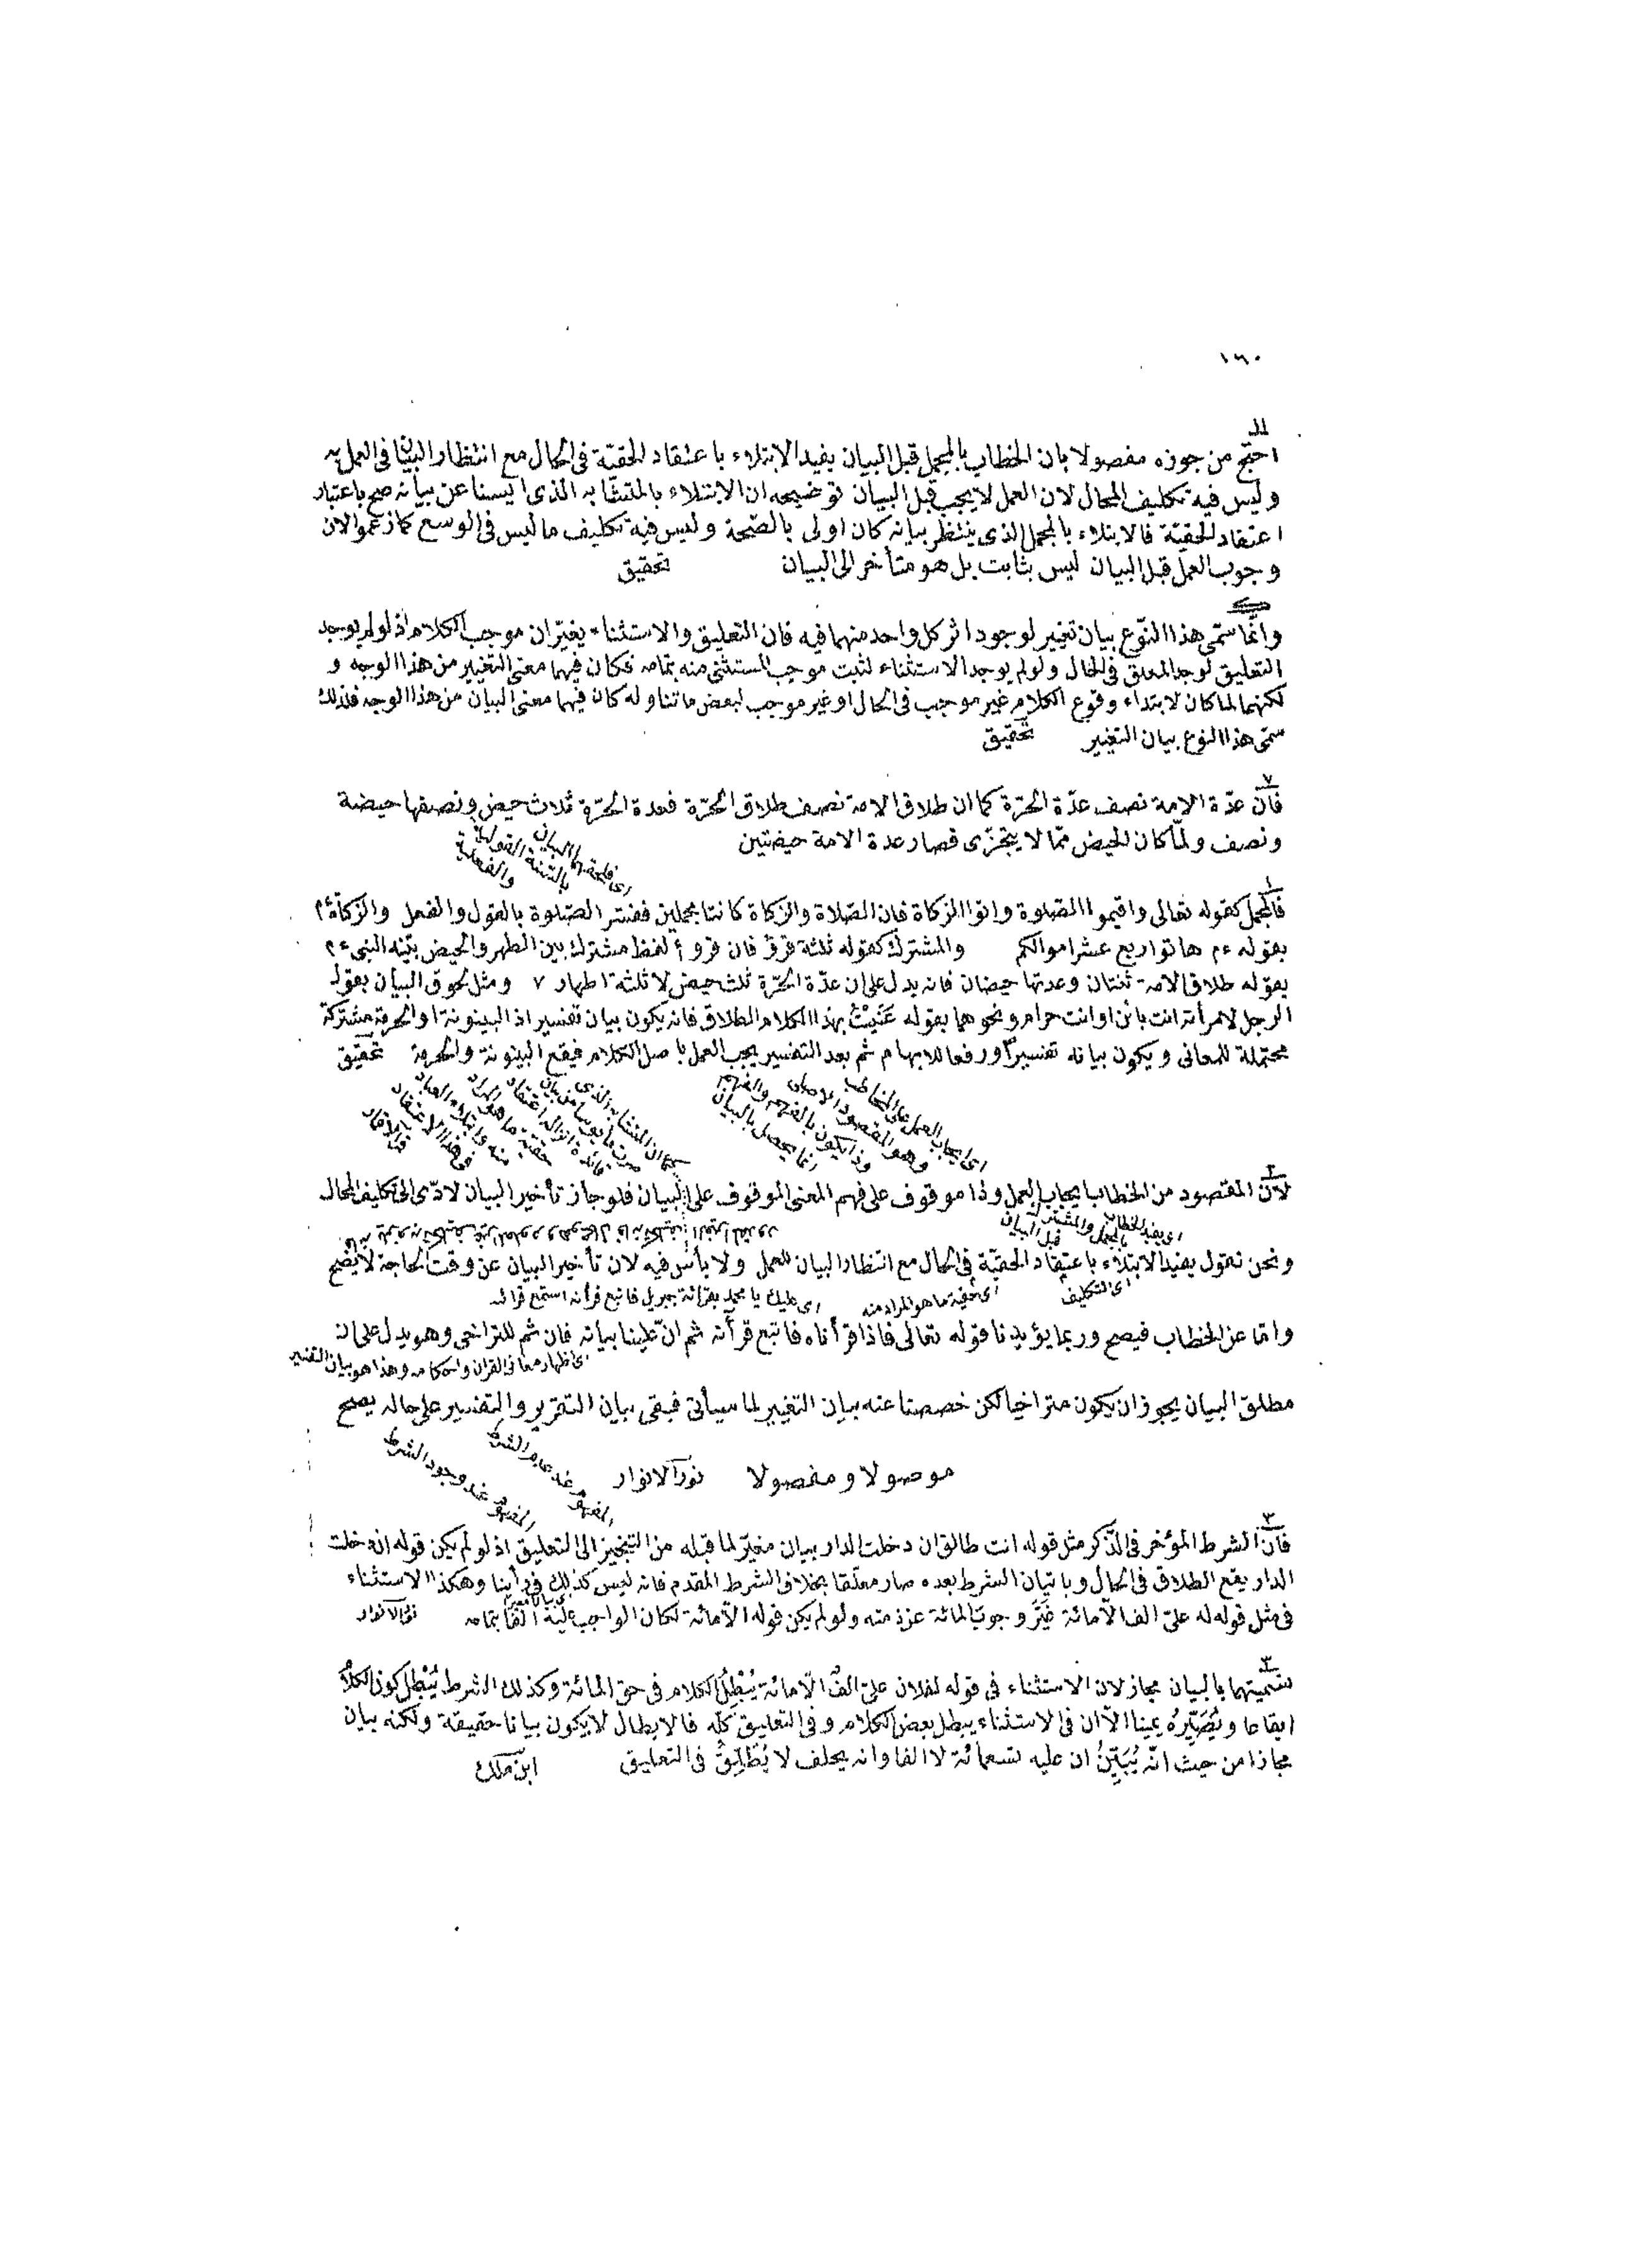 ١٦٠
احتج من جوزه مفصولا بان الخطاب بالمجمل قبل البيان يفيد الابتلاء باعتقاد الحقيّة فى الحال مع انتظار البيان فى العمل به
وليس فيه تكليف المحال لان العمل لا يجب قبل البيان توضيحه ان الابتلاء بالمتشابه الذى ايسنا عن بيانه صح باعتبار
اعتقاد الحقيّة فالابتلاء بالمجمل الذى ينتظر بيانه كان اولى بالصّحة وليس فيه تكليف ما ليس فى الوسع كما زعموا لان
وجوب العمل قبل البيان ليس بثابت بل هو متأخر الى البيان تحقيق
وانّما سمّى هذا النّوع بيان تغيير لوجود اثر كل واحد منهما فيه فان التعليق والاستثناء يغيّران موجب الكلام اذ لو لم يوجد
التعليق لوجد المعلق فى الحال ولو لم يوجد الاستثناء لثبت موجب المستثنى منه بتمامه فكان فيهما معنى التغيير من هذا الوجه و
لكنهما لما كان لابتداء وقوع الكلام غير موجب فى الحال او غير موجب لبعض ما تناوله كان فيهما معنى البيان من هذا الوجه فلذلك
سمّى هذا النوع بيان التغيير تحقيق
٧
فانّ عدّة الامة نصف عدّة الحرّة كما ان طلاق الامة نصف طلاق الحرّة فعدة الحرّة ثلاث حيض ونصفها حيضة
ونصف ولمّا كان الحيض ممّا لا يتجزّى فصار عدة الامة حيضتين
اى فلحقهما البيان
بالسّنة القولية
والفعلية
١
فالمجمل كقوله تعالى واقيموا الصّلوة واتوا الزكاة فان الصّلاة والزكاة كانتا مجملين ففسّر الصّلوة بالقول والفعل والزكاة
بقوله ءم هاتوا ربع عشر اموالكم والمشترك كقوله ثلثة قروء فان قروءً لفظ مشترك بين الطهر والحيض بيّنه النبى ءم
بقوله طلاق الامة ثنتان وعدتها حيضتان فانه يدل على ان عدّة الحرّة ثلث حيض لا ثلثة اطهار ٧ ومثل لحوق البيان بقول
الرجل لامرأته انت بائن او انت حرام ونحوهما بقوله عَنَيْتُ بهذا الكلام الطلاق فانه يكون بيان تفسير اذ البينونة او الحرمة مشتركة
محتملة للمعانى ويكون بيانه تفسيراً ورفعا للابهام ثم بعد التفسير يجب العمل باصل الكلام فيقع البينونة والحرمة تحقيق
اى ايجاب العمل على المخاطب
وهو المقصود الاصلى
وذا يكون بالفهم والفهم
انما يحصل بالبيان
٢
لانّ المقصود من الخطاب ايجاب العمل وذا موقوف على فهم المعنى الموقوف على البيان فلو جاز تأخير البيان لادّى الى تكليف المحال
اى يفيد الخطاب
بالمجمل والمشترك
قبل البيان
ونحن نقول يفيد الابتلاء باعتقاد الحقيّة فى الحال مع انتظار البيان للعمل ولا بأس فيه لان تأخير البيان عن وقت الحاجة لا يصح
اى التكليف اى حقية ما هو المراد منه اى عليك يا محمد بقرائة جبريل فاتبع قرأنه استمع قرائته
وامّا عن الخطاب فيصح وربما يؤيدنا قوله تعالى فاذا قرأناه فاتبع قرآنه ثم انّ علينا بيانه فان ثم للتراخى وهو يدل على ان
اى اظهار معانى القران واحكامه وهذا هو بيان التفسير
مطلق البيان يجوز ان يكون متراخيا لكن خصصنا عنه بيان التغيير لما سيأتى فبقى بيان التقرير والتفسير على حاله يصح
موصولا ومفصولا نور الانوار
٣
فانّ الشرط المؤخر فى الذّكر مثل قوله انت طالق ان دخلت الدار بيان مغيّر لما قبله من التنجيز الى التعليق اذ لو لم يكن قوله ان دخلت
الدار يقع الطلاق فى الحال وباتيان الشرط بعده صار معلّقا بخلاف الشرط المقدم فانه ليس كذلك فى رأينا وهكذا الاستثناء
فى مثل قوله له علىّ الف الاّ مائة غَيَّرَ وجوب المائة عن ذمته ولو لم يكن قوله الاّ مائة لكان الواجب عليه الفا بتمامه نور الانوار
٣
تسميتهما بالبيان مجاز لان الاستثناء فى قوله لفلان علىّ الفٌ الاّ مائة يُبْطِلُ الكلام فى حق المائة وكذلك الشرط يُبْطِل كون الكلام
ايقاعا ويُصَيِّرهُ يمينا الاّ ان فى الاستثناء يبطل بعض الكلام وفى التعليق كلّه فالابطال لا يكون بيانا حقيقة ولكنه بيان
مجازا من حيث انّه يُبَيِّنُ ان عليه تسعمائة لا الفا وانه يحلف لا يُطَلِّقُ فى التعليق ابن ملك